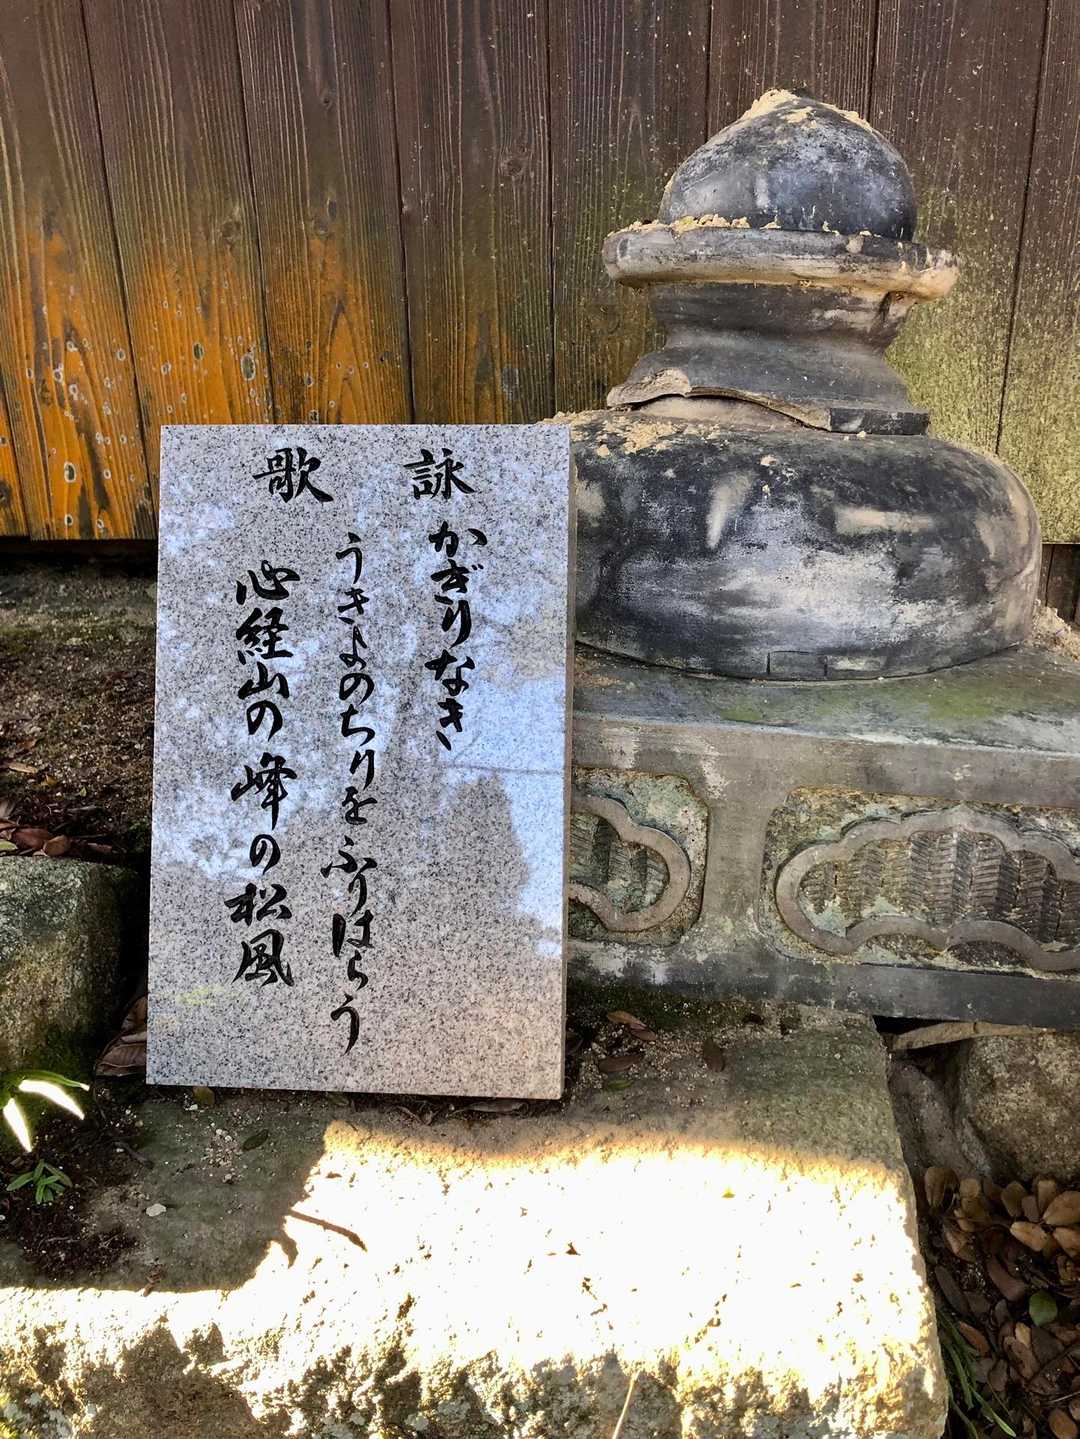 詠歌
かぎりなき
うきよのちりをふりはらう
心経山の峰の松風